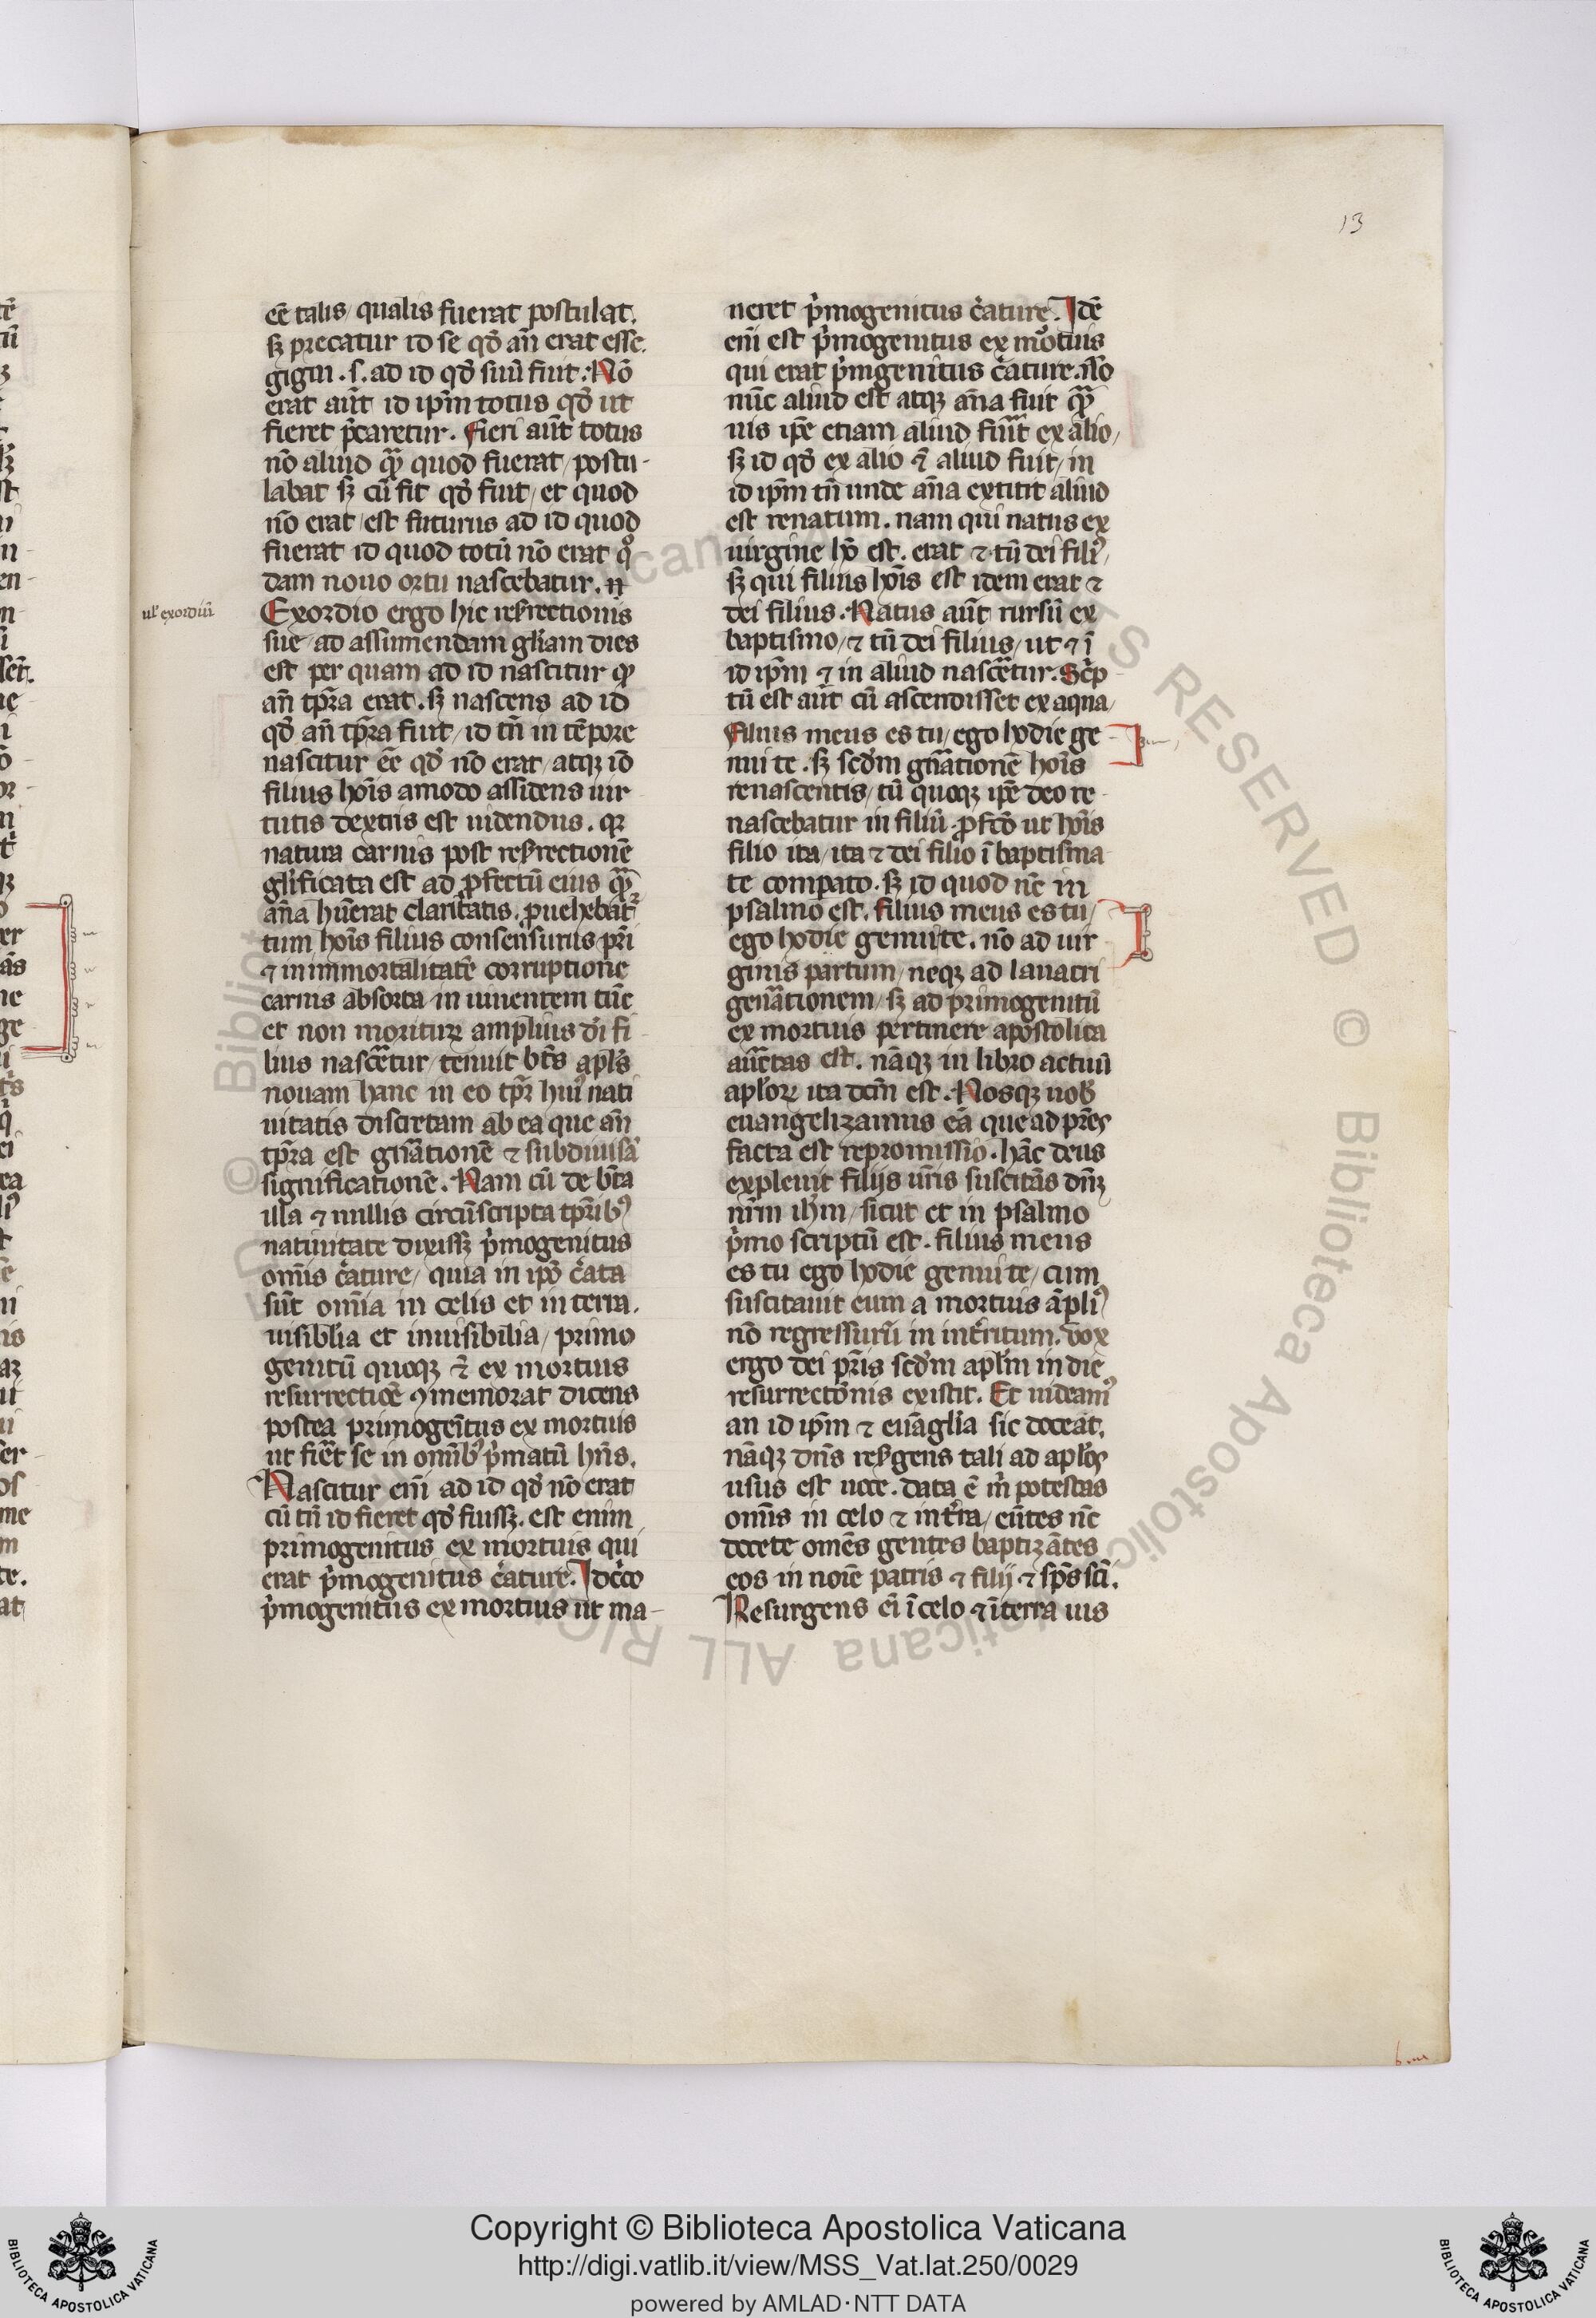 13
eē talis/ qualis fuerat postulat.
sꝫ precatur id se qđ añ erat esse.
gigni .s. ad id qđ suū fuit. Nō
erat aūt id ip̄m totus qđ ut
fieret p̄caretur. fieri aūt totus
nō aliud qᷓ quod fuerat/ postu-
labat sꝫ cū fit qđ fuit/ et quod
nō erat/ est futurus ad id quod
fuerat id quod totū nō erat qͦ
dam nouo ortu nascebatur.
ul' exordiū
Exordio ergo hic resʳrectionis
sue/ ad assumendam gl'iam dies
est per quam ad id nascitur qđ
añ tp̄ra erat. sꝫ nascens ad id
qđ añ tp̄ra fuit/ id tñ in tēpore
nascitur eē qđ nō erat/ atqꝫ id
filius hoīs amodo assidens uir
tutis dextris est uidendus. qꝛ
natura carnis post resʳrectionē
gl'ificata est ad ꝓfectū eius qᷓ
añ hūerat claritatis. ꝓuehebat᷑
tum hoīs filius consensurus pr̄i
⁊ in immortalitatē corruptione
carnis absorta in uiuentem tūc
et non moriturꝫ amplius di fi
lius nascēetur/ tenuit btś apl's
nouam hanc in eo tp̄r hui᷒ nati
uitatis discretam ab ea que añ
tp̄ra est gn̄ationē ⁊ subdiuisā
significationē. Nam cū de bt̄a
illa ⁊ nullis circūscripta tp̄rib᷒
natiuitate dixissꝫ p̄mogenitus
om̄is c̄ature/ quia in ip̄o c̄ata
sūt om̄ia in celis et in terra.
uisiblia et inuisibilia/ primo
genitū quoqꝫ ē ex mortuis
resurrecticē ꝯmemorat dicens
postea primogeītus ex mortuis
ut fiet se in om̄ib᷒ p̄matū hn̄s.
Nascitur eni ad id qđ nō erat
cū tñ id fieret qđ fuissꝫ. est enim
primogenitus ex mortuis qui
erat p̄mogenitus c̄ature. Idc̄co
p̄mogenitus ex mortuis ut ma-
neret p̄mogenitus c̄ature. Idē
eni est p̄mogenitus ex moͬtuis
qui erat p̄migenitus c̄ature. nō
nūc aliud est atqꝫ añ fuit qᷓ
uis ip̄e etiam aliud fiūt ex alio/
sꝫ id qđ ex alio ē aliud fuit/ in
id ip̄m tñ unde añ extitit aliud
est renatum. nam qui natus ex
uirgine hō est. erat ⁊ tū dei fili᷒/
sꝫ qui filius hoīs est idem erat ⁊
dei filius. Natus aūt rursū ex
baptismo/ ⁊ tū dei filius/ ut ⁊ ī
id ip̄m ⁊ in aliud nascēetur. Sc̄p
tū est aūt cū ascendisset ex aqua/
filius meus es tu/ ego hodie ge
nui te. sꝫ scđm gn̄ationē hoīs
renascentis/ tū quoqꝫ ip̄e deo re
nascebatur in filiū. ꝓfcō ut hoīs
filio ita/ ita ⁊ dei filio ī baptisma
te compato. sꝫ id quod nc̄ in
psalmo est. filius meus es tu/
ego hodie genui te. nō ad uir
ginis partum/ neqꝫ ad lauacri
gen̄ationem/ sꝫ ad primogenitū
ex mortuis pertinere apostolica
auctas est. nāqꝫ in libro actuū
apl'oꝝ ita dcm̄ est. Nosqꝫ uob
euangelizamus eā que ad pr̄es
facta est repromissio. hāc deus
expleuit filijs ūris suscitās dn̄ꝫ
nr̄m ih̄m/ sicut et in psalmo
p̄mo scriptū est. filius meus
es tu ego hodie genui te/ cum
suscitauit eum a mortuis āpli᷒
nō regressurū in int̄itum. vox
ergo dei pr̄is scđm apl'm in die
resurrectōnis existit. Et uideam᷒
an id ip̄m ⁊ euāglia sic doceāt.
nāqꝫ dn̄s resʳgens tali ad apl'os
usus est uoce. data ē m̄ potestas
om̄is in celo ⁊ int̄ra/ eūtes nc̄
docete omēs gentes baptizātes
eos in noīe patris ⁊ filij ⁊ sp̄s sc̄i.
Resurgens ei ī celo ⁊ ī terra ius
Copyright © Biblioteca Apostolica Vaticana
http://digi.vatlib.it/view/MSS_Vat.lat.250/0029
powered by AMLAD·NTT DATA
BIBLIOTECA APOSTOLICA VATICANA
BIBLIOTECA APOSTOLICA VATICANA